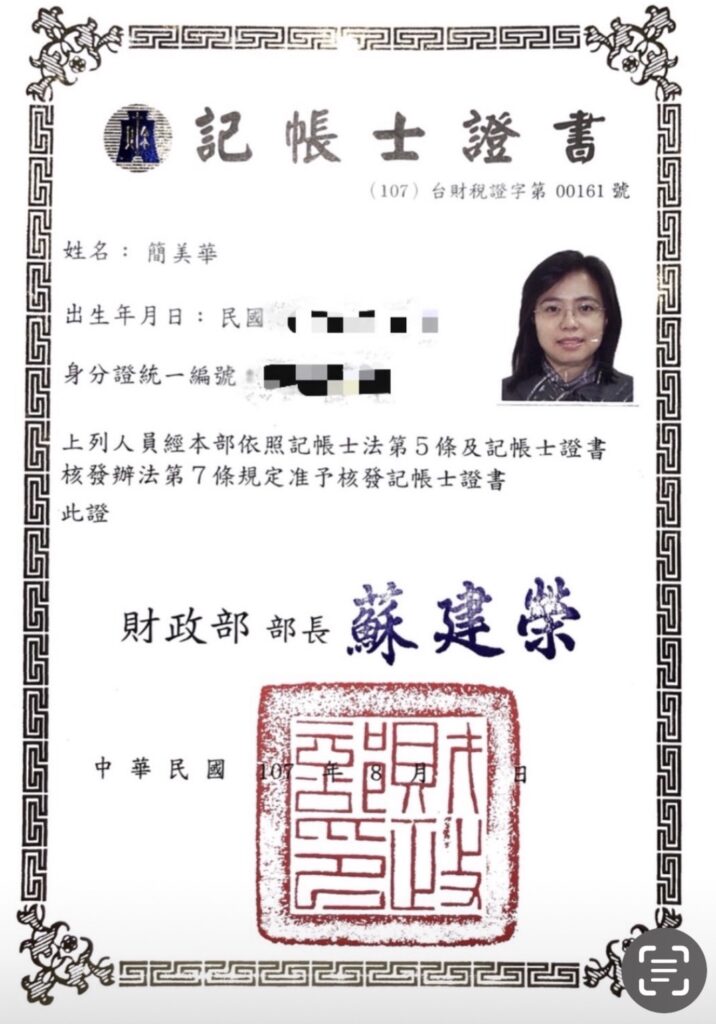 記帳士證書
(107)台財稅證字第 00161 號
姓名：簡美華
出生年月日：民國
身分證統一編號
上列人員經本部依照記帳士法第5條及記帳士證書
核發辦法第7條規定准予核發記帳士證書
此證
財政部 部長 蘇建榮
中華民國 107 年 8 月 日
財政部印